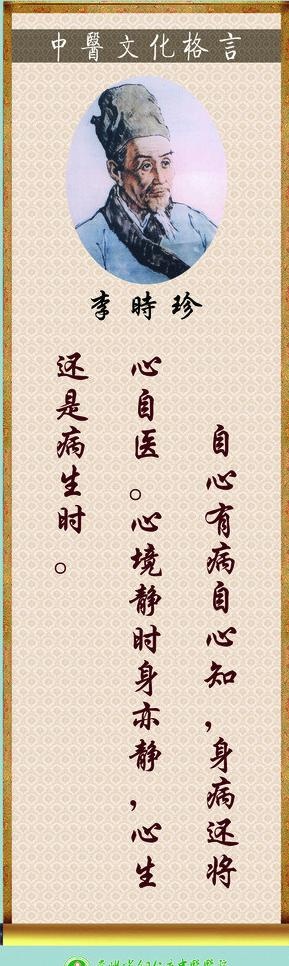 中醫文化格言
李時珍
自心有病自心知，身病还将
心自医。心境静时身亦静，心生
还是病生时。